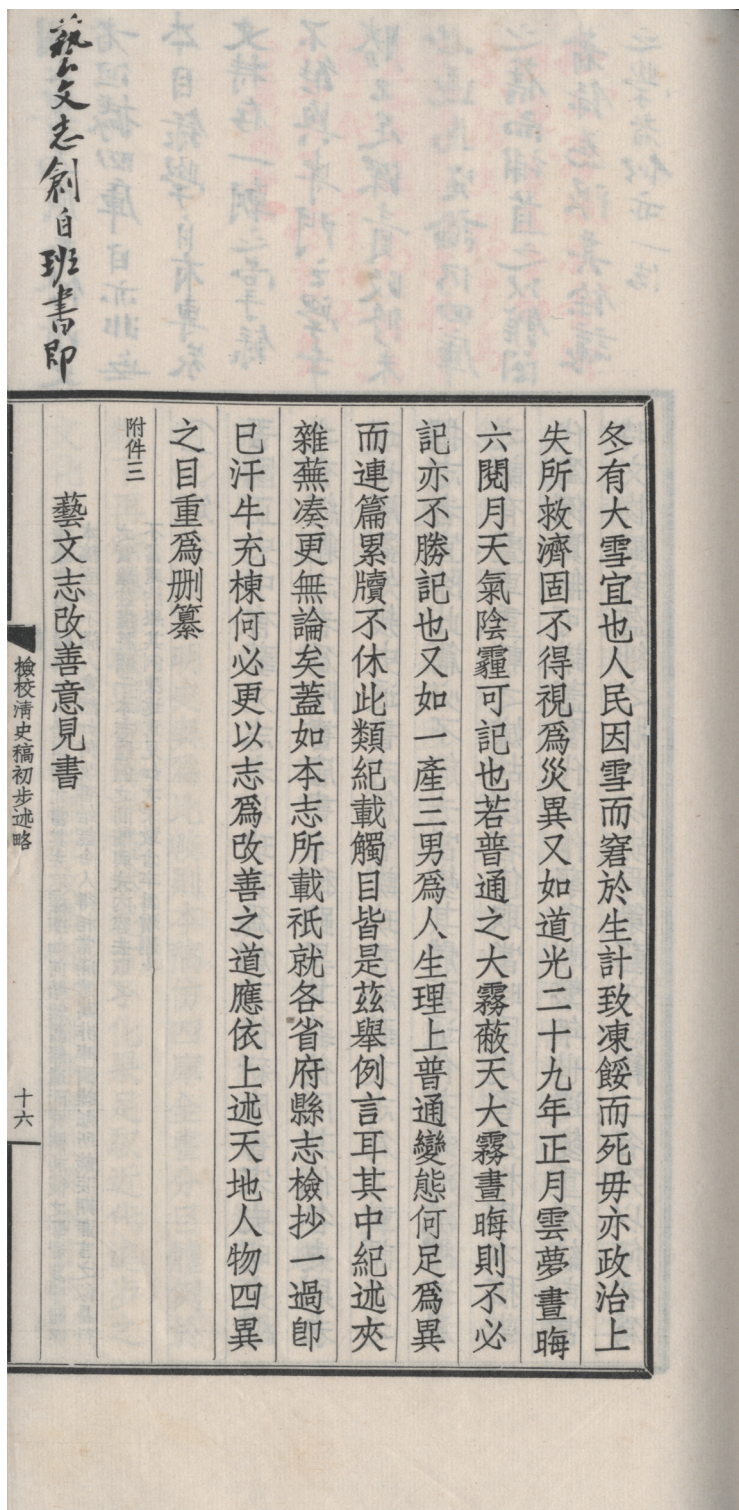 冬有大雪宜也人民因雪而窘於生計致凍餒而死毋亦政治上
失所救濟固不得視爲災異又如道光二十九年正月雲夢晝晦
六閱月天氣陰霾可記也若普通之大霧蔽天大霧晝晦則不必
記亦不勝記也又如一產三男爲人生理上普通變態何足爲異
而連篇累牘不休此類紀載觸目皆是茲舉例言耳其中紀述夾
雜蕪凑更無論矣蓋如本志所載祇就各省府縣志檢抄一過卽
已汗牛充棟何必更以志爲改善之道應依上述天地人物四異
之目重爲刪纂
附件三
藝文志改善意見書
檢校清史稿初步述略
十六
藝文志創自班書即